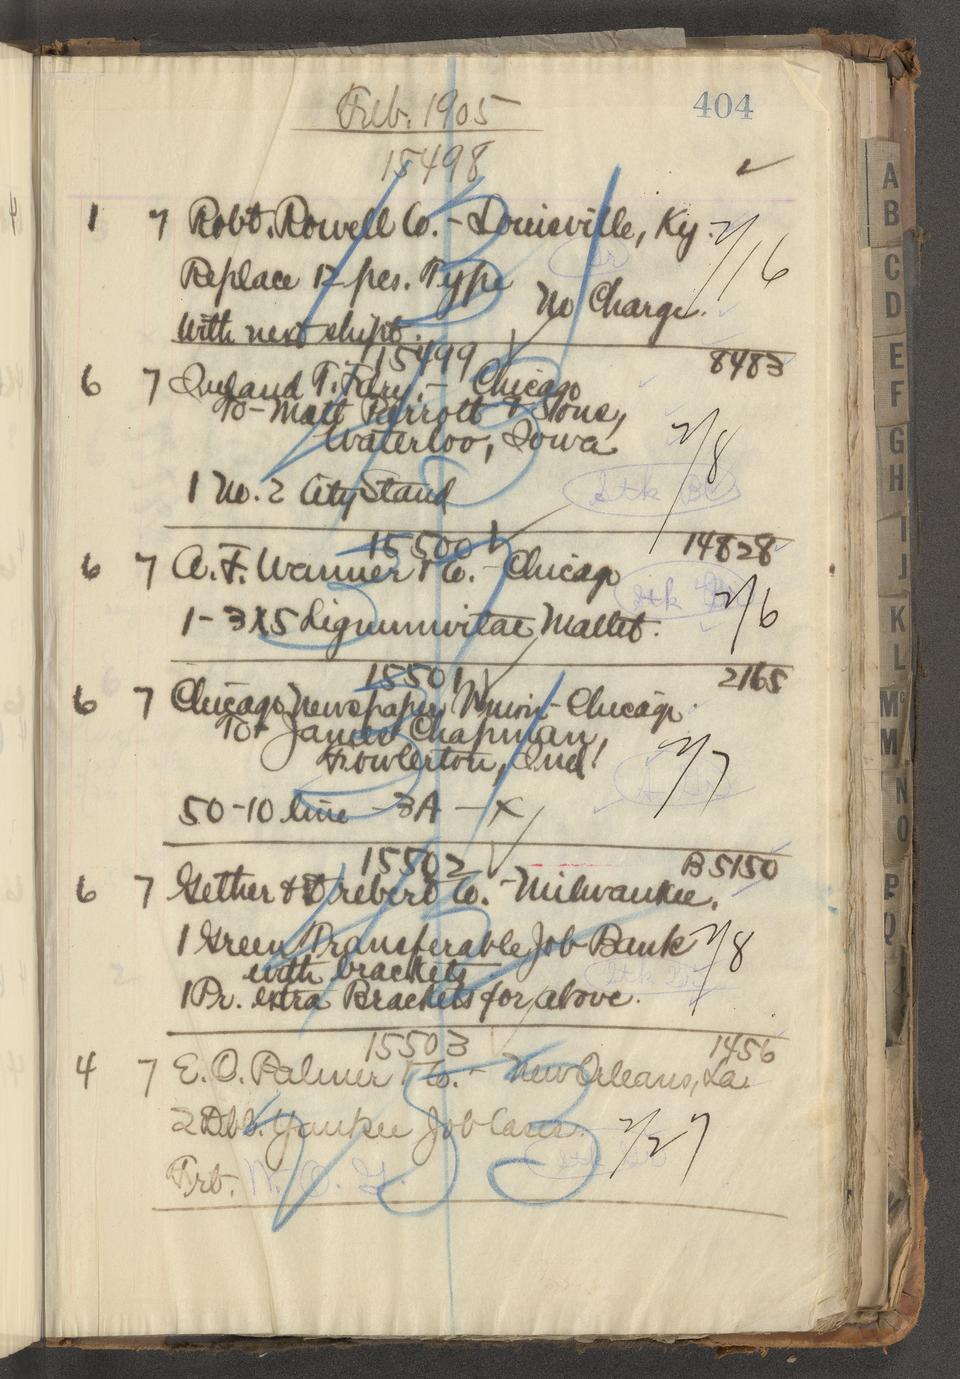 404
Feb. 1905
15498
1 7 Robt. Rowell Co. - Louisville, Ky. 2/16
Replace 12 pcs. Type
No Charge.
with next shipt.
15499 8483
6 7 Inland T. Fdry. - Chicago
To - Matt Parrott & Sons,
Waterloo, Iowa 2/8
1 No. 2 City Stand Stk
15500 14828
6 7 A. F. Wanner & Co. - Chicago
1 - 3X5 Lignumvitae Mallet. Stk 2/6
15501 2165
6 7 Chicago Newspaper Union - Chicago
To James Chapman,
Fowlerton, Ind. 2/7
50 - 10 line - 3A - X
15502 B5150
6 7 Gether & Drebert Co. - Milwaukee.
1 Green Transferable Job Bank 2/8
with brackets Stk
1 Pr. extra Brackets for above.
15503 1456
4 7 E. O. Palmer & Co. - New Orleans, La.
2 Dbl. Yankee Job Cases. 2/27
Frt. N. O.
A
B
C
D
E
F
G
H
I
J
K
L
Mc
M
N
O
P
Q